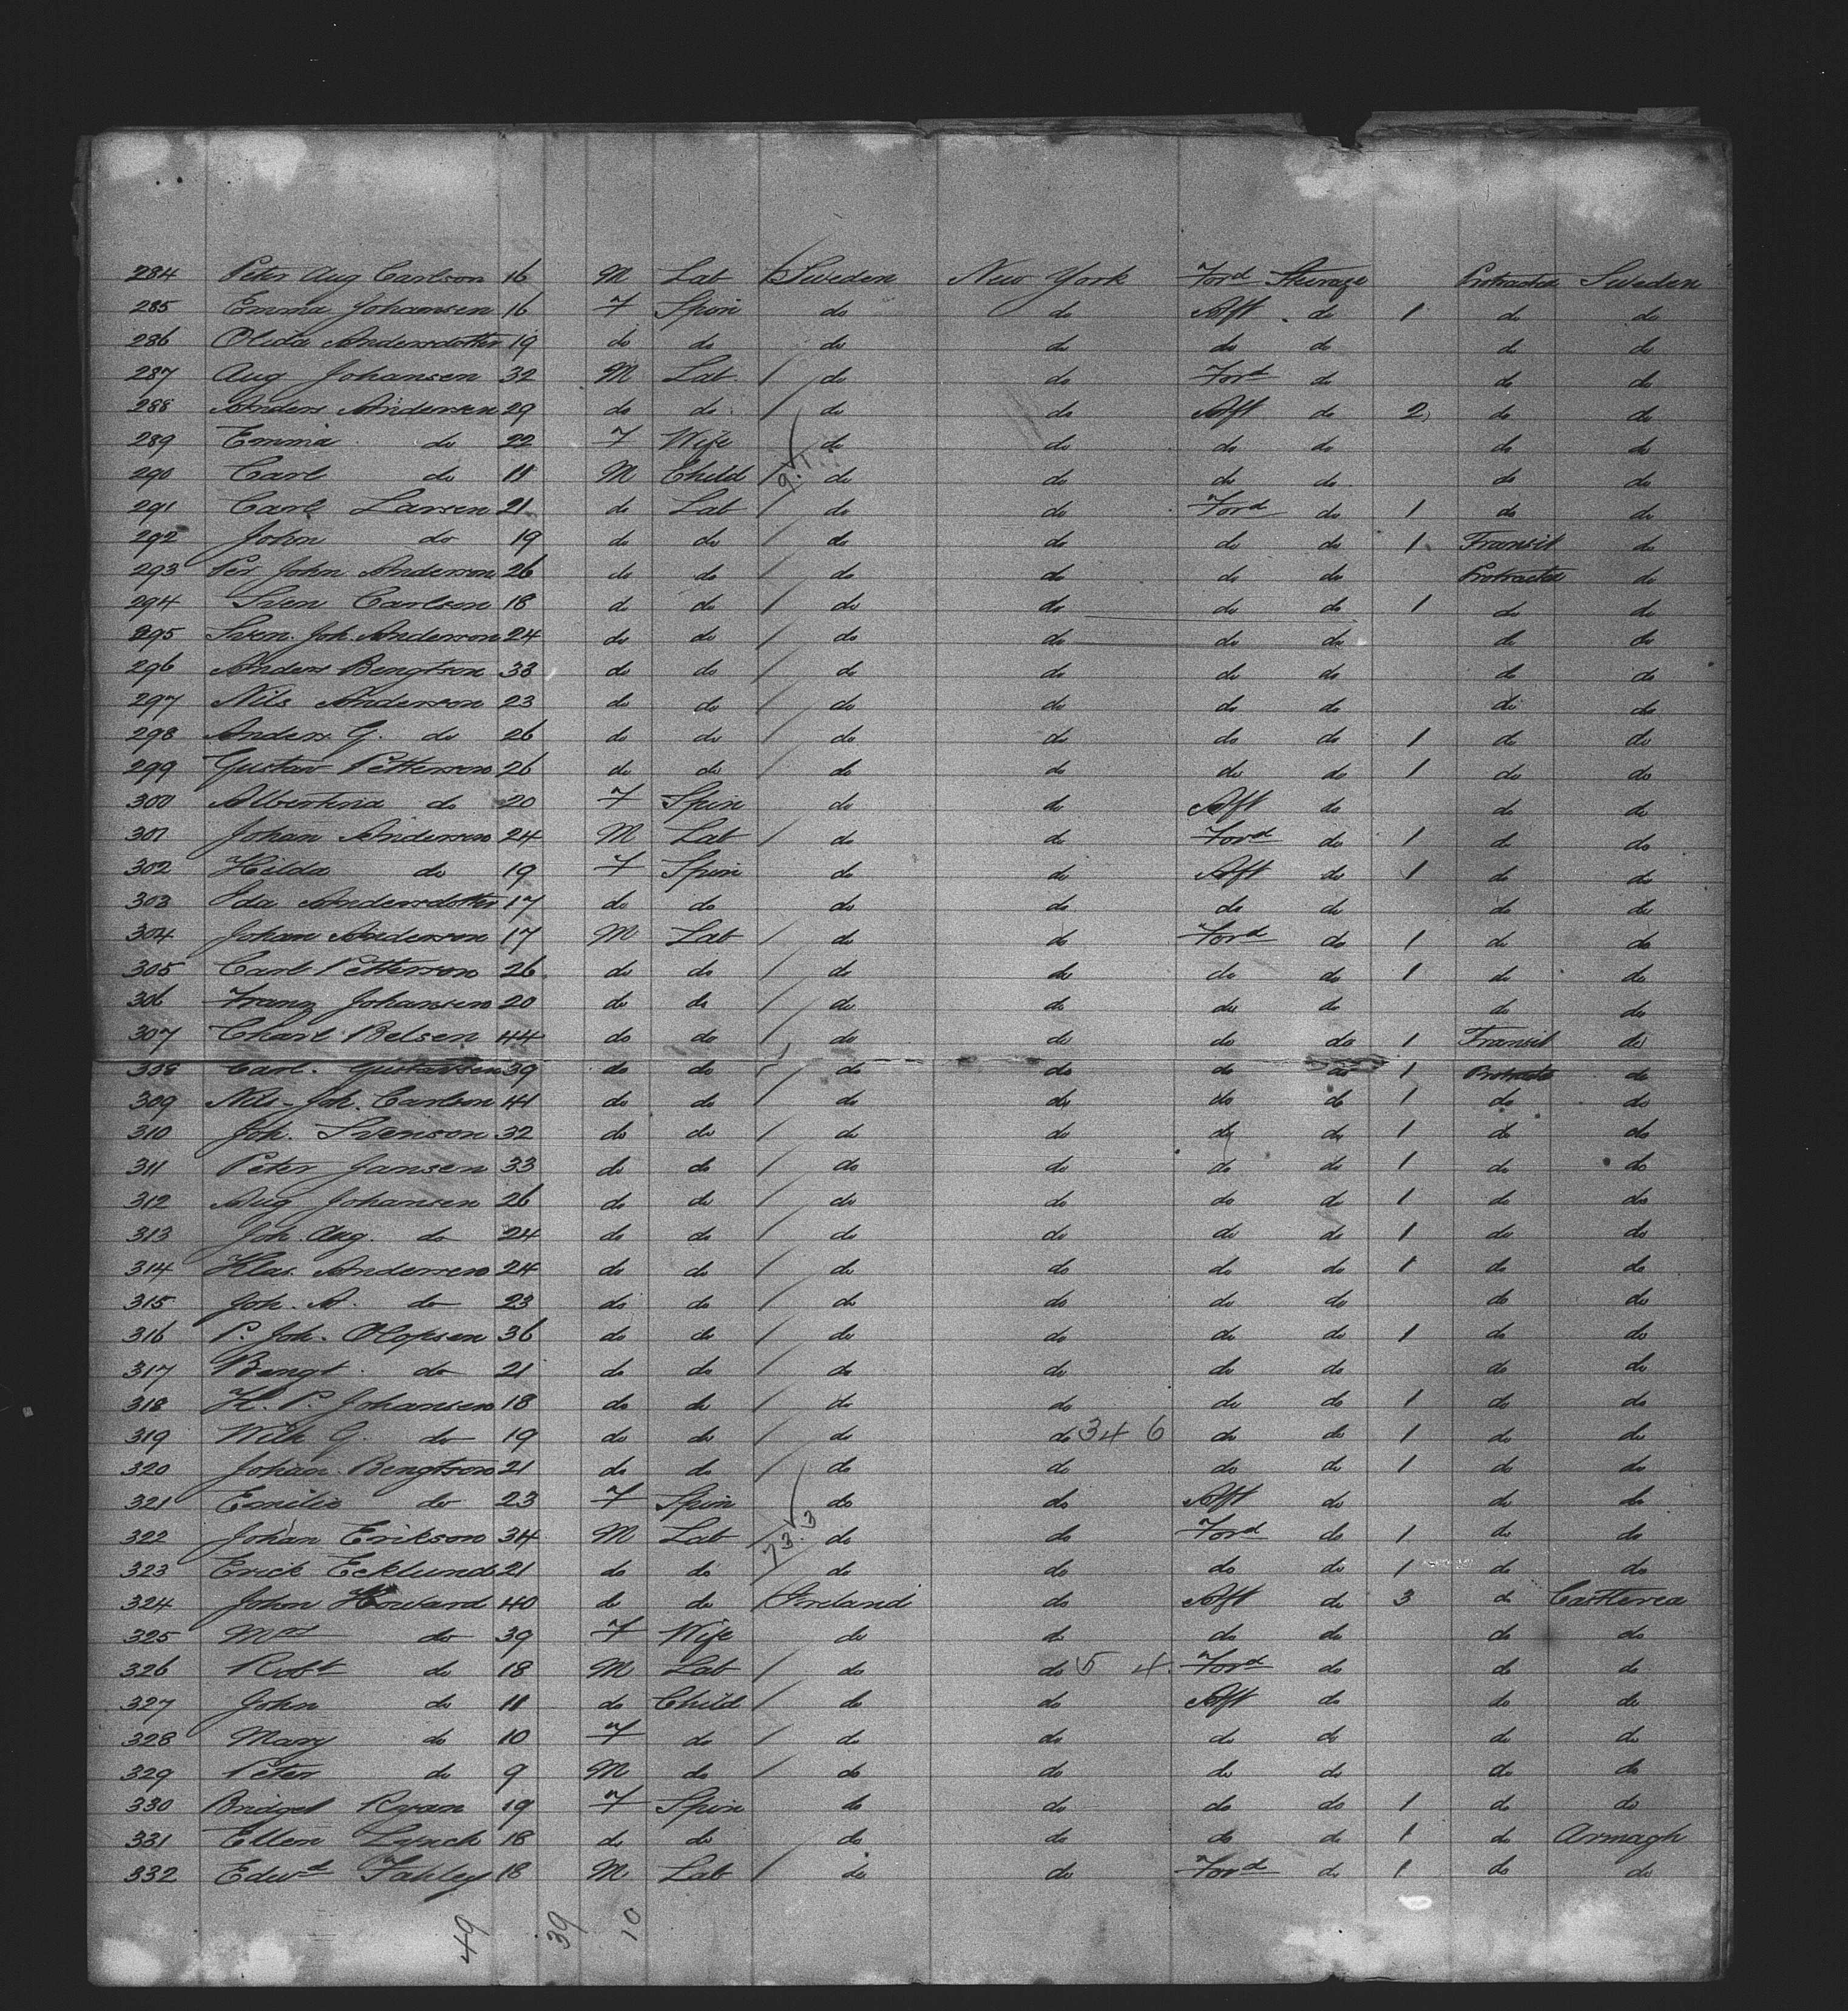 284 Peter Aug Carlson 16 M Lab Sweden New York Ford Steerage Protracted Sweden
285 Emma Johansen 16 F Spin do do Aft do 1 do do
286 Olida Andersdotter 19 do do do do do do do do
287 Aug Johansen 32 M Lab do do Ford do do do
288 Anders Andersen 29 do do do do Aft do 2 do do
289 Emma do 22 F Wife do do do do do do
290 Carl do 11 M Child do do do do do do
291 Carl Larsen 21 do Lab do do Ford do 1 do do
292 John do 19 do do do do do do 1 Transit do
293 Per John Anderson 26 do do do do do do Protracted do
294 Sven Carlson 18 do do do do do do 1 do do
295 Sven. Joh. Anderson 24 do do do do do do do do
296 Anders Bengtson 33 do do do do do do do do
297 Nils Anderson 23 do do do do do do do do
298 Anders G. do 26 do do do do do do 1 do do
299 Gustav Petterson 26 do do do do do do 1 do do
300 Albertina do 20 F Spin do do Aft do do do
301 Johan Anderson 24 M Lab do do Ford do 1 do do
302 Hilda do 19 F Spin do do Aft do 1 do do
303 Ida Andersdotter 17 do do do do do do do do
304 Johan Anderson 17 M Lab do do Ford do 1 do do
305 Carl Petterson 26 do do do do do do 1 do do
306 Franz Johansen 20 do do do do do do do do
307 Charl Belsen 44 do do do do do do 1 Transit do
308 Carl. Gustavsen 39 do do do do do do 1 Protracted do
309 Nils-Joh. Carlson 41 do do do do do do 1 do do
310 Joh. Svenson 32 do do do do do do 1 do do
311 Peter Jansen 33 do do do do do do 1 do do
312 Aug Johansen 26 do do do do do do 1 do do
313 Joh. Aug. do 24 do do do do do do 1 do do
314 Klas Andersen 24 do do do do do do 1 do do
315 Joh. A. do 23 do do do do do do do do
316 P. Joh. Olofsen 36 do do do do do do 1 do do
317 Bengt do 21 do do do do do do do do
318 H. P. Johansen 18 do do do do do do 1 do do
319 Wilh G. do 19 do do do do 34 6 do do 1 do do
320 Johan Bengtson 21 do do do do do do 1 do do
321 Emilie do 23 F Spin do do Aft do do do
322 Johan Erikson 34 M Lab do do Ford do 1 do do
323 Erick Ecklund 21 do do do do do do 1 do do
324 John Howard 40 do do Ireland do Aft do 3 do Castlerea
325 Mrs do 39 F Wife do do do do do do
326 Robt do 18 M Lab do do 5 4 Ford do do do
327 John do 11 do Child do do Aft do do do
328 Mary do 10 F do do do do do do do
329 Peter do 9 M do do do do do do do
330 Bridget Ryan 19 F Spin do do do do 1 do do
331 Ellen Lynch 18 do do do do do do 1 do Armagh
332 Edwd Fahley 18 M Lab do do Ford do 1 do do
49 39 10